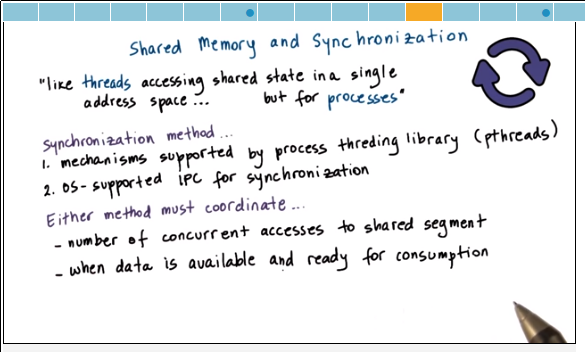 Shared Memory and Synchronization
"like threads accessing shared state in a single
address space... but for processes"
Synchronization method...
1. mechanisms supported by process threding library (pthreads)
2. OS-supported IPC for synchronization
Either method must coordinate...
- number of concurrent accesses to shared segment
- when data is available and ready for consumption